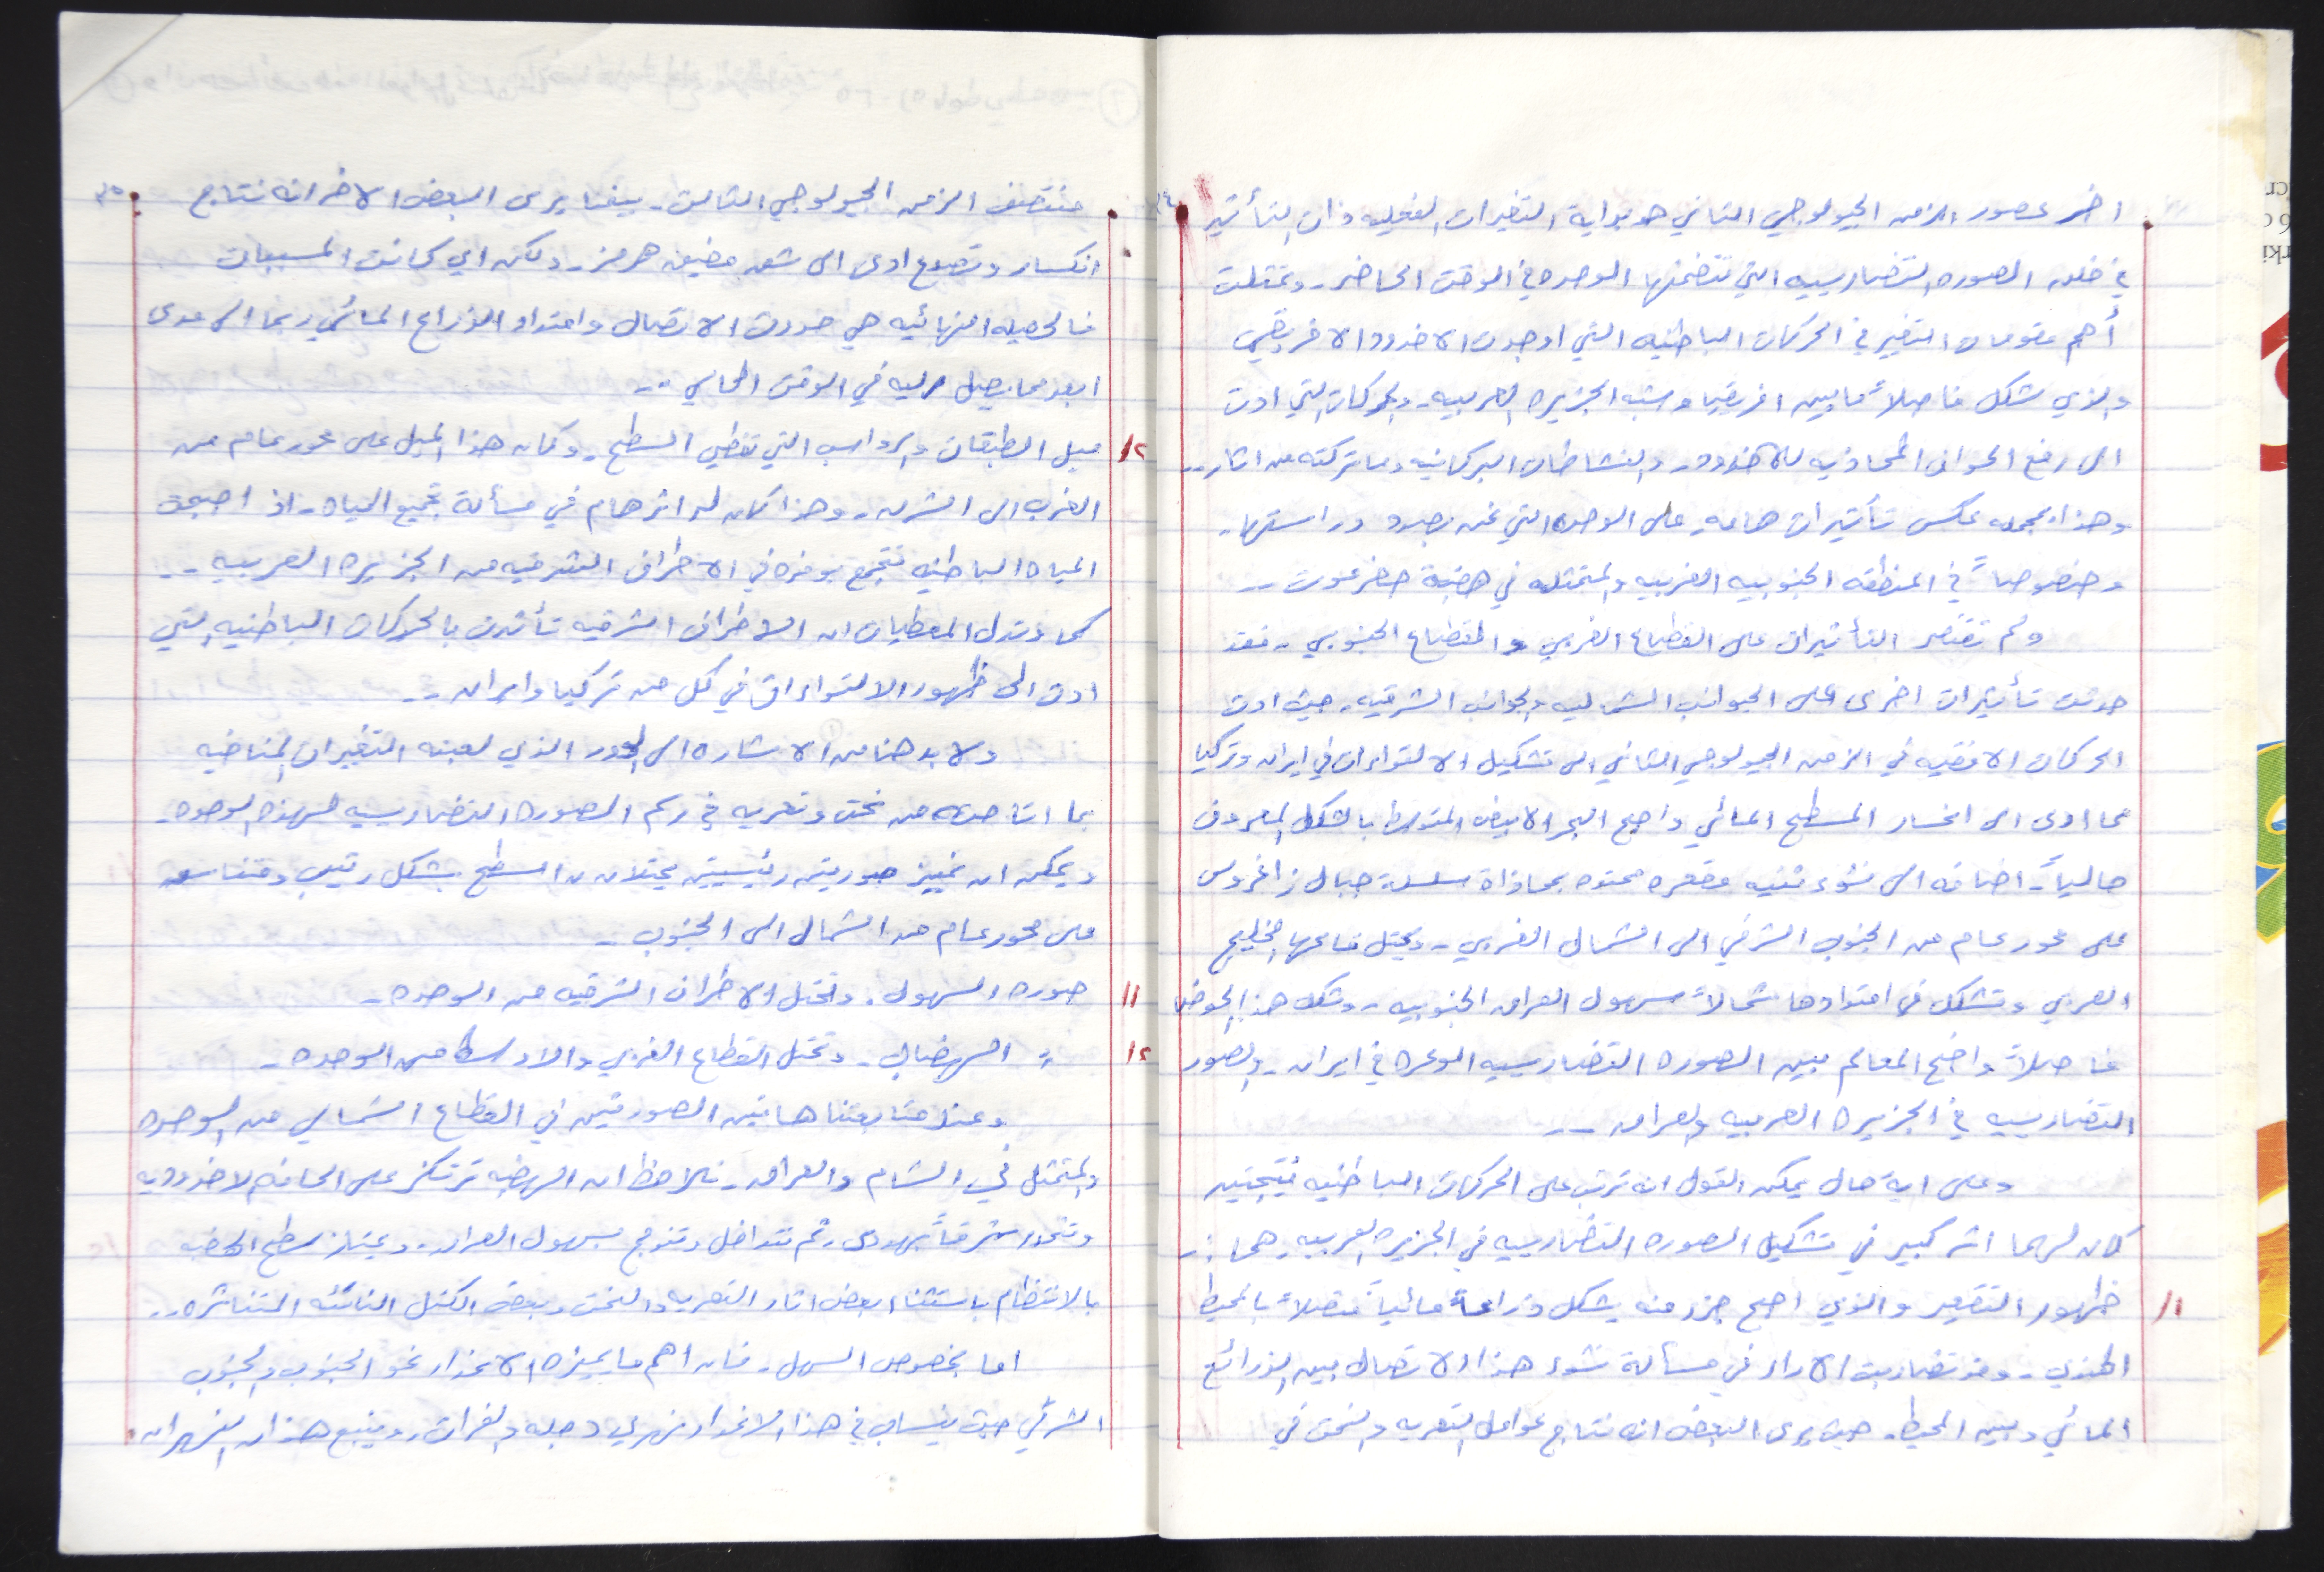 اخر عصور الزمن الجيولوجي الثاني هو بداية التغيرات الفعليه ذات التأثير
في خلق الصوره التضاريسيه التي تتضمنها الوحده في الوقت الحاضر - وتمثلت
أهم مقومات التغيير في الحركات الباطنيه التي اوجدت الاخدود الافريقي
والذي شكل فاصلاً مابين افريقيا وشبه الجزيره العربيه - والحركات التي ادت
الى رفع الحواف المحاذيه للاخدود - والنشاطات البركانيه وماتركته من اثار --
وهذا بمجمله عكس تأثيرات هامه على الوحده التي نحن بصدد دراستها -
وخصوصاً في المنطقه الجنوبيه الغربيه والمتمثله في هضبة حضرموت --
ولم تقتصر التأثيرات على القطاع الغربي والقطاع الجنوبي - فقد
حدثت تأثيرات اخرى على الجوانب الشماليه والجوانب الشرقيه - حيث ادت
الحركات الافقيه في الزمن الجيولوجي الثاني الى تشكيل الالتواءات في ايران وتركيا
مما ادى الى انحسار المسطح المائي واصبح البحر الابيض المتوسط بالشكل المعروف
حالياً - اضافه الى نشوء ثنيه مقعره ممتده بمحاذاة سلسلة جبال زاغروس
على محور عام من الجنوب الشرقي الى الشمال الغربي - ويحتل قاعها الخليج
العربي وتشكل في امتدادها شمالاً سهول العراق الجنوبيه - وشكل هذا الحوض
فاصلاً واضح المعالم بين الصوره التضاريسيه الوعره في ايران - والصور
التضاريسيه في الجزيره العربيه والعراق --
وعلى اية حال يمكن القول انه ترتب على الحركات الباطنيه نتيجتين
كان لهما اثر كبير في تشكيل الصوره التضاريسيه في الجزيره العربيه - هما :-
١/ ظهور التقعير والذي اصبح جزء منه يشكل ذراعاً مائياً متصلاً بالمحيط
الهندي - وقد تضاربت الاراء في مسألة نشوء هذا الاتصال بين الذراع
المائي وبين المحيط - حيث يرى البعض انه نتاج عوامل التعريه والنحت في
منتصف الزمن الجيولوجي الثالث - بينما يرى البعض الاخر انه نتاج
انكسار وتصدع ادى الى شق مضيق هرمز - ولكن اي كانت المسببات
فالحصيله النهائيه هي حدوث الاتصال وامتداد الذراع المائي ربما الى مدى
ابعد مما يصل اليه في الوقت الحالي --
٢/ ميل الطبقات والرواسب التي تغطي السطح - وكان هذا الميل على محور عام من
الغرب الى الشرق - وهذا كان له اثر هام في مسألة تجميع المياه - اذ اصبحت
المياه الباطنيه تتجمع بوفره في الاطراف الشرقيه من الجزيره العربيه --
كما وتدل المعطيات ان الاطراف الشرقيه تأثرت بالحركات الباطنيه التي
ادت الى ظهور الالتواءات في كل من تركيا وايران --
ولا بد هنا من الاشاره الى الدور الذي لعبته التغيرات المناخيه
بما اتاحته من نحت وتعريه في رسم الصوره التضاريسيه لهذه الوحده -
ويمكن ان نميز صورتين رئيسيتين يحتلان السطح بشكل رتيب ومتناسق
على محور عام من الشمال الى الجنوب -
١/ صوره السهول - وتحتل الاطراف الشرقيه من الوحده -
٢/ = الهضاب - وتحتل القطاع الغربي والاوسط من الوحده -
وعند متابعتنا هاتين الصورتين في القطاع الشمالي من الوحده
والمتمثل في الشام والعراق - نلاحظ ان الهضبه ترتكز على الحافه الاخدوديه
وتنحدر شرقاً بهدوء ثم تتداخل وتندمج بسهول العراق - ويمتاز سطح الهضبه
بالانتظام باستثناء بعض اثار التعريه والنحت وبعض الكتل الناتئه المتناثره --
اما بخصوص السهل - فان اهم مايميزه الانحدار نحو الجنوب والجنوب
الشرقي حيث ينساب في هذا الانحدار نهري دجله والفرات - وينبع هذان النهران